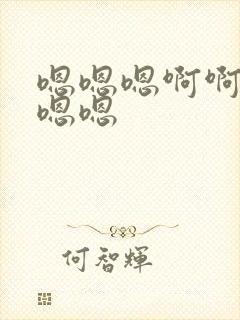 嗯嗯嗯啊啊
嗯嗯
何智輝